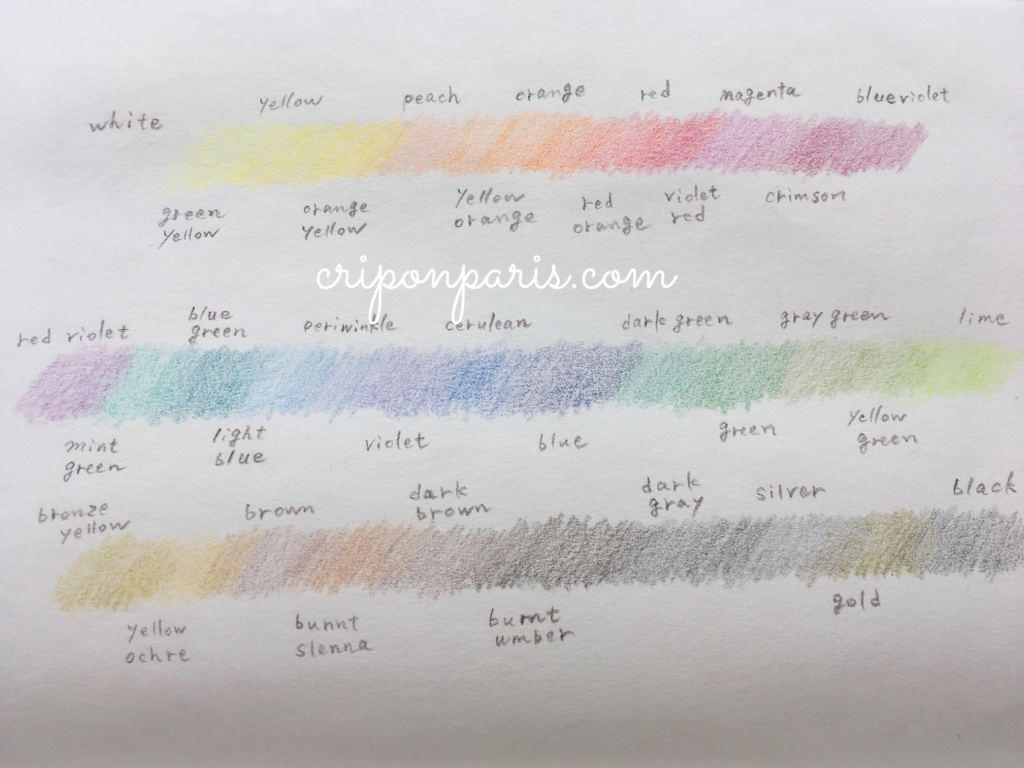 white yellow peach orange red magenta blueviolet
green yellow
orange yellow
yellow orange
red orange
violet red
crimson
criponparis.com
red violet
blue green
periwinkle cerulean dark green gray green lime
mint green
light blue
violet blue green
yellow green
bronze yellow
brown
dark brown
dark gray
silver black
yellow ochre
bunnt sienna
burnt umber
gold